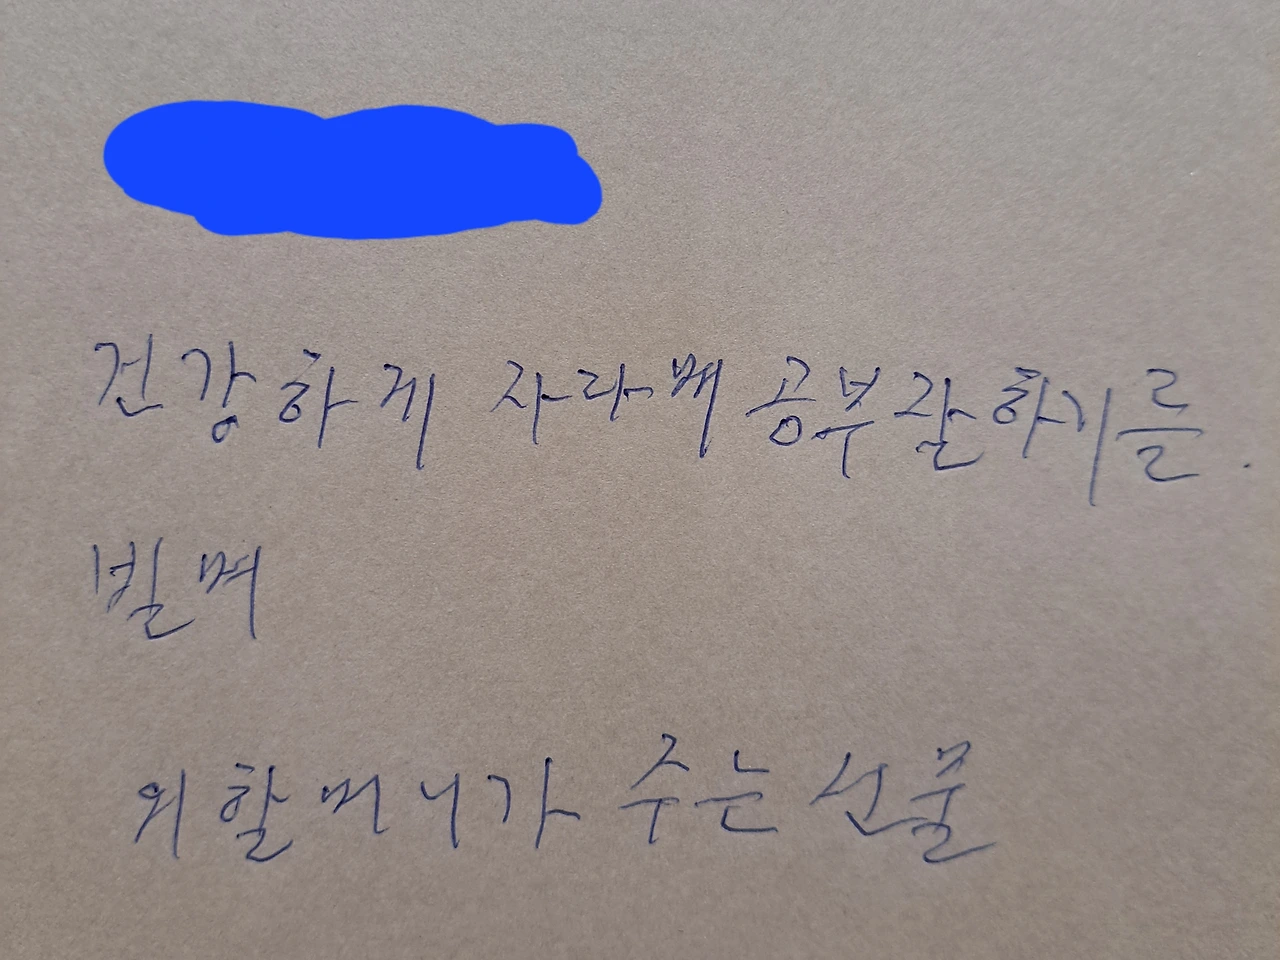 건강하게 자라며 공부잘하기를.
빌며
외할머니가 주는 선물